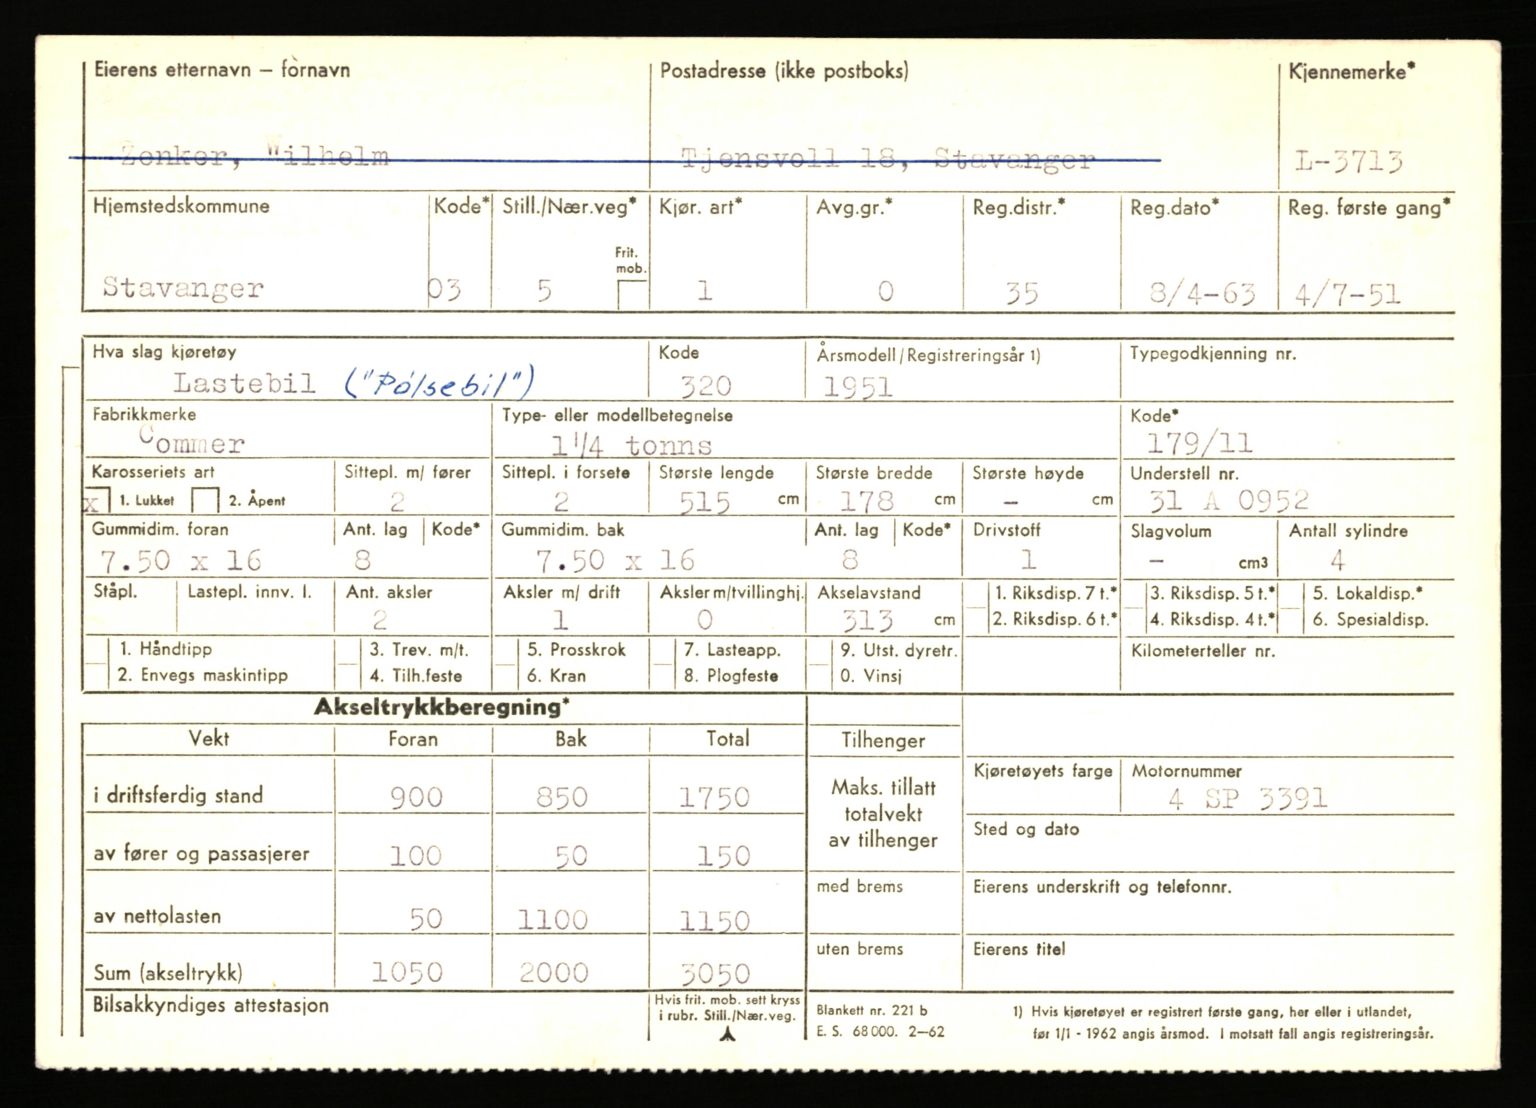 Eierens etternavn – fornavn Postadresse (ikke postboks) Kjennemerke*
Zenker, Wilhelm Tjensvoll 18, Stavanger L-3713
Hjemstedskommune Kode* Still./Nær.veg* Kjør. art* Avg.gr.* Reg.distr.* Reg.dato* Reg. første gang*
Frit.
mob.
Stavanger 03 5 1 0 35 8/4-63 4/7-51
Hva slag kjøretøy Kode Årsmodell/Registreringsår 1) Typegodkjenning nr.
Lastebil ("Pølsebil") 320 1951
Fabrikkmerke Type- eller modellbetegnelse Kode*
Commer 1 1/4 tonns 179/11
Karosseriets art Sittepl. m/ fører Sittepl. i forsete Største lengde Største bredde Største høyde Understell nr.
x 1. Lukket 2. Åpent 2 2 515 cm 178 cm - cm 31 A 0952
Gummidim. foran Ant. lag Kode* Gummidim. bak Ant. lag Kode* Drivstoff Slagvolum Antall sylindre
7.50 x 16 8 7.50 x 16 8 1 - cm3 4
Ståpl. Lastepl. innv. l. Ant. aksler Aksler m/ drift Aksler m/tvillinghj. Akselavstand 1. Riksdisp. 7 t.* 3. Riksdisp. 5 t.* 5. Lokaldisp.*
2 1 0 313 cm 2. Riksdisp. 6 t.* 4. Riksdisp. 4 t.* 6. Spesialdisp.
1. Håndtipp 3. Trev. m/t. 5. Prosskrok 7. Lasteapp. 9. Utst. dyretr. Kilometerteller nr.
2. Envegs maskintipp 4. Tilh.feste 6. Kran 8. Plogfeste 0. Vinsj
Akseltrykkberegning*
Vekt Foran Bak Total Tilhenger
Kjøretøyets farge Motornummer
i driftsferdig stand 900 850 1750 Maks. tillatt 4 SP 3391
totalvekt
av tilhenger
Sted og dato
av fører og passasjerer 100 50 150
med brems Eierens underskrift og telefonnr.
av nettolasten 50 1100 1150
uten brems Eierens titel
Sum (akseltrykk) 1050 2000 3050
Bilsakkyndiges attestasjon Hvis frit. mob. sett kryss
i rubr. Still./Nær.veg.
Blankett nr. 221 b 1) Hvis kjøretøyet er registrert første gang, her eller i utlandet,
E. S. 68 000. 2–62 før 1/1 - 1962 angis årsmod. I motsatt fall angis registreringsår.